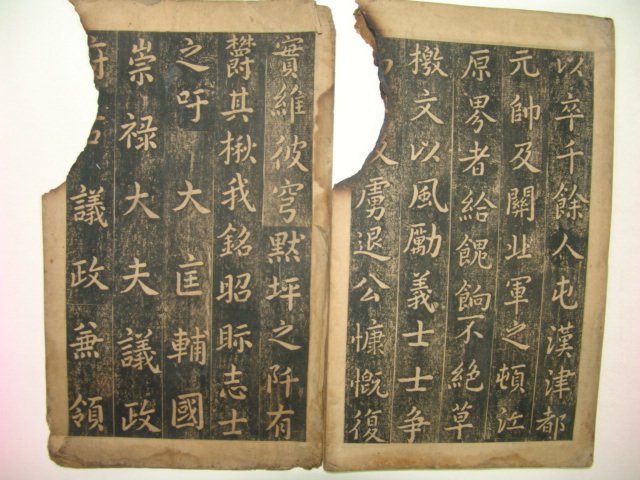 以卒千餘人屯漢津都
元帥及關北軍之頓江
原界者給餽餉不絶草
檄文以風勵義士士争
虜退公慷慨復
實維彼穹默坪之阡有
欝其楸我銘昭眎志士
之吁大匡輔國
崇禄大夫議政
府右議政兼領